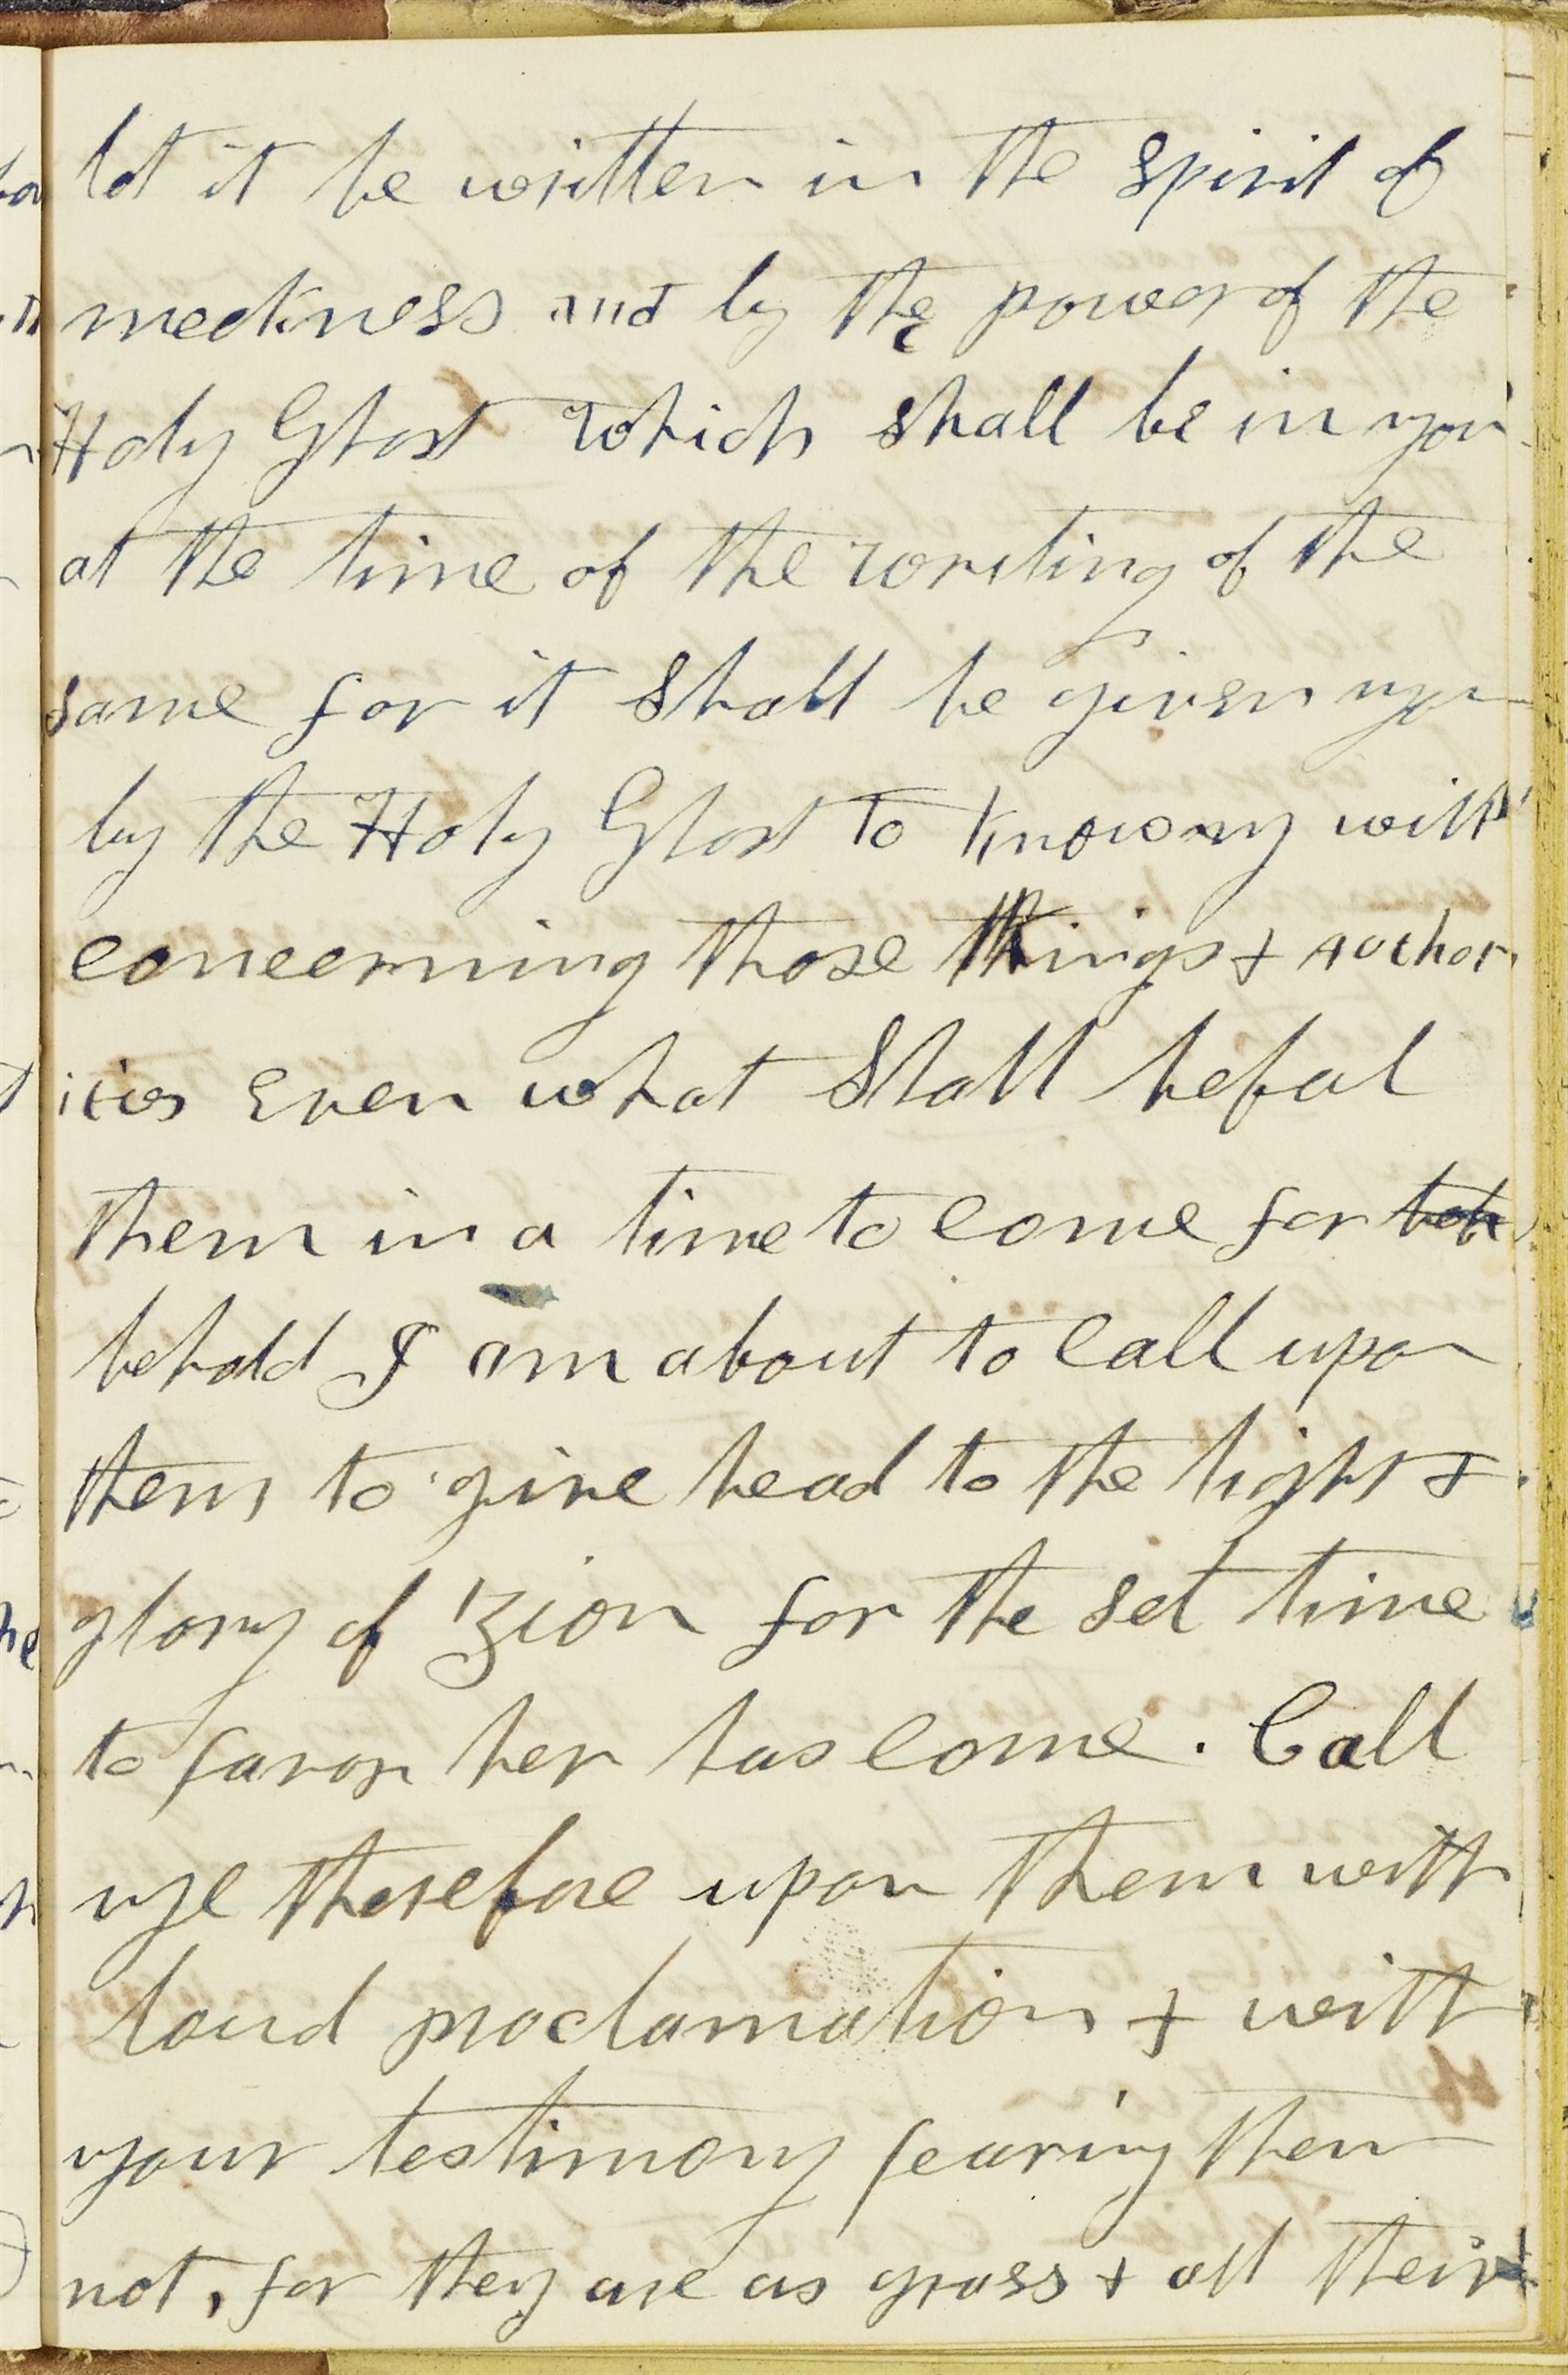 let it be written in the spirit of
meekness and by the power of the
Holy Ghost which shall be in you
at the time of the writing of the
same for it shall be given you
by the Holy Ghost to know my will
concerning those things + author
ities even what shall befal
them in a time to come for beh
behold I am about to call upon
them to give head to the light +
glory of Zion for the set time
to favor her has come. Call
ye therefore upon them with
loud proclamation + with
your testimony fearing them
not, for they are as grass + all their